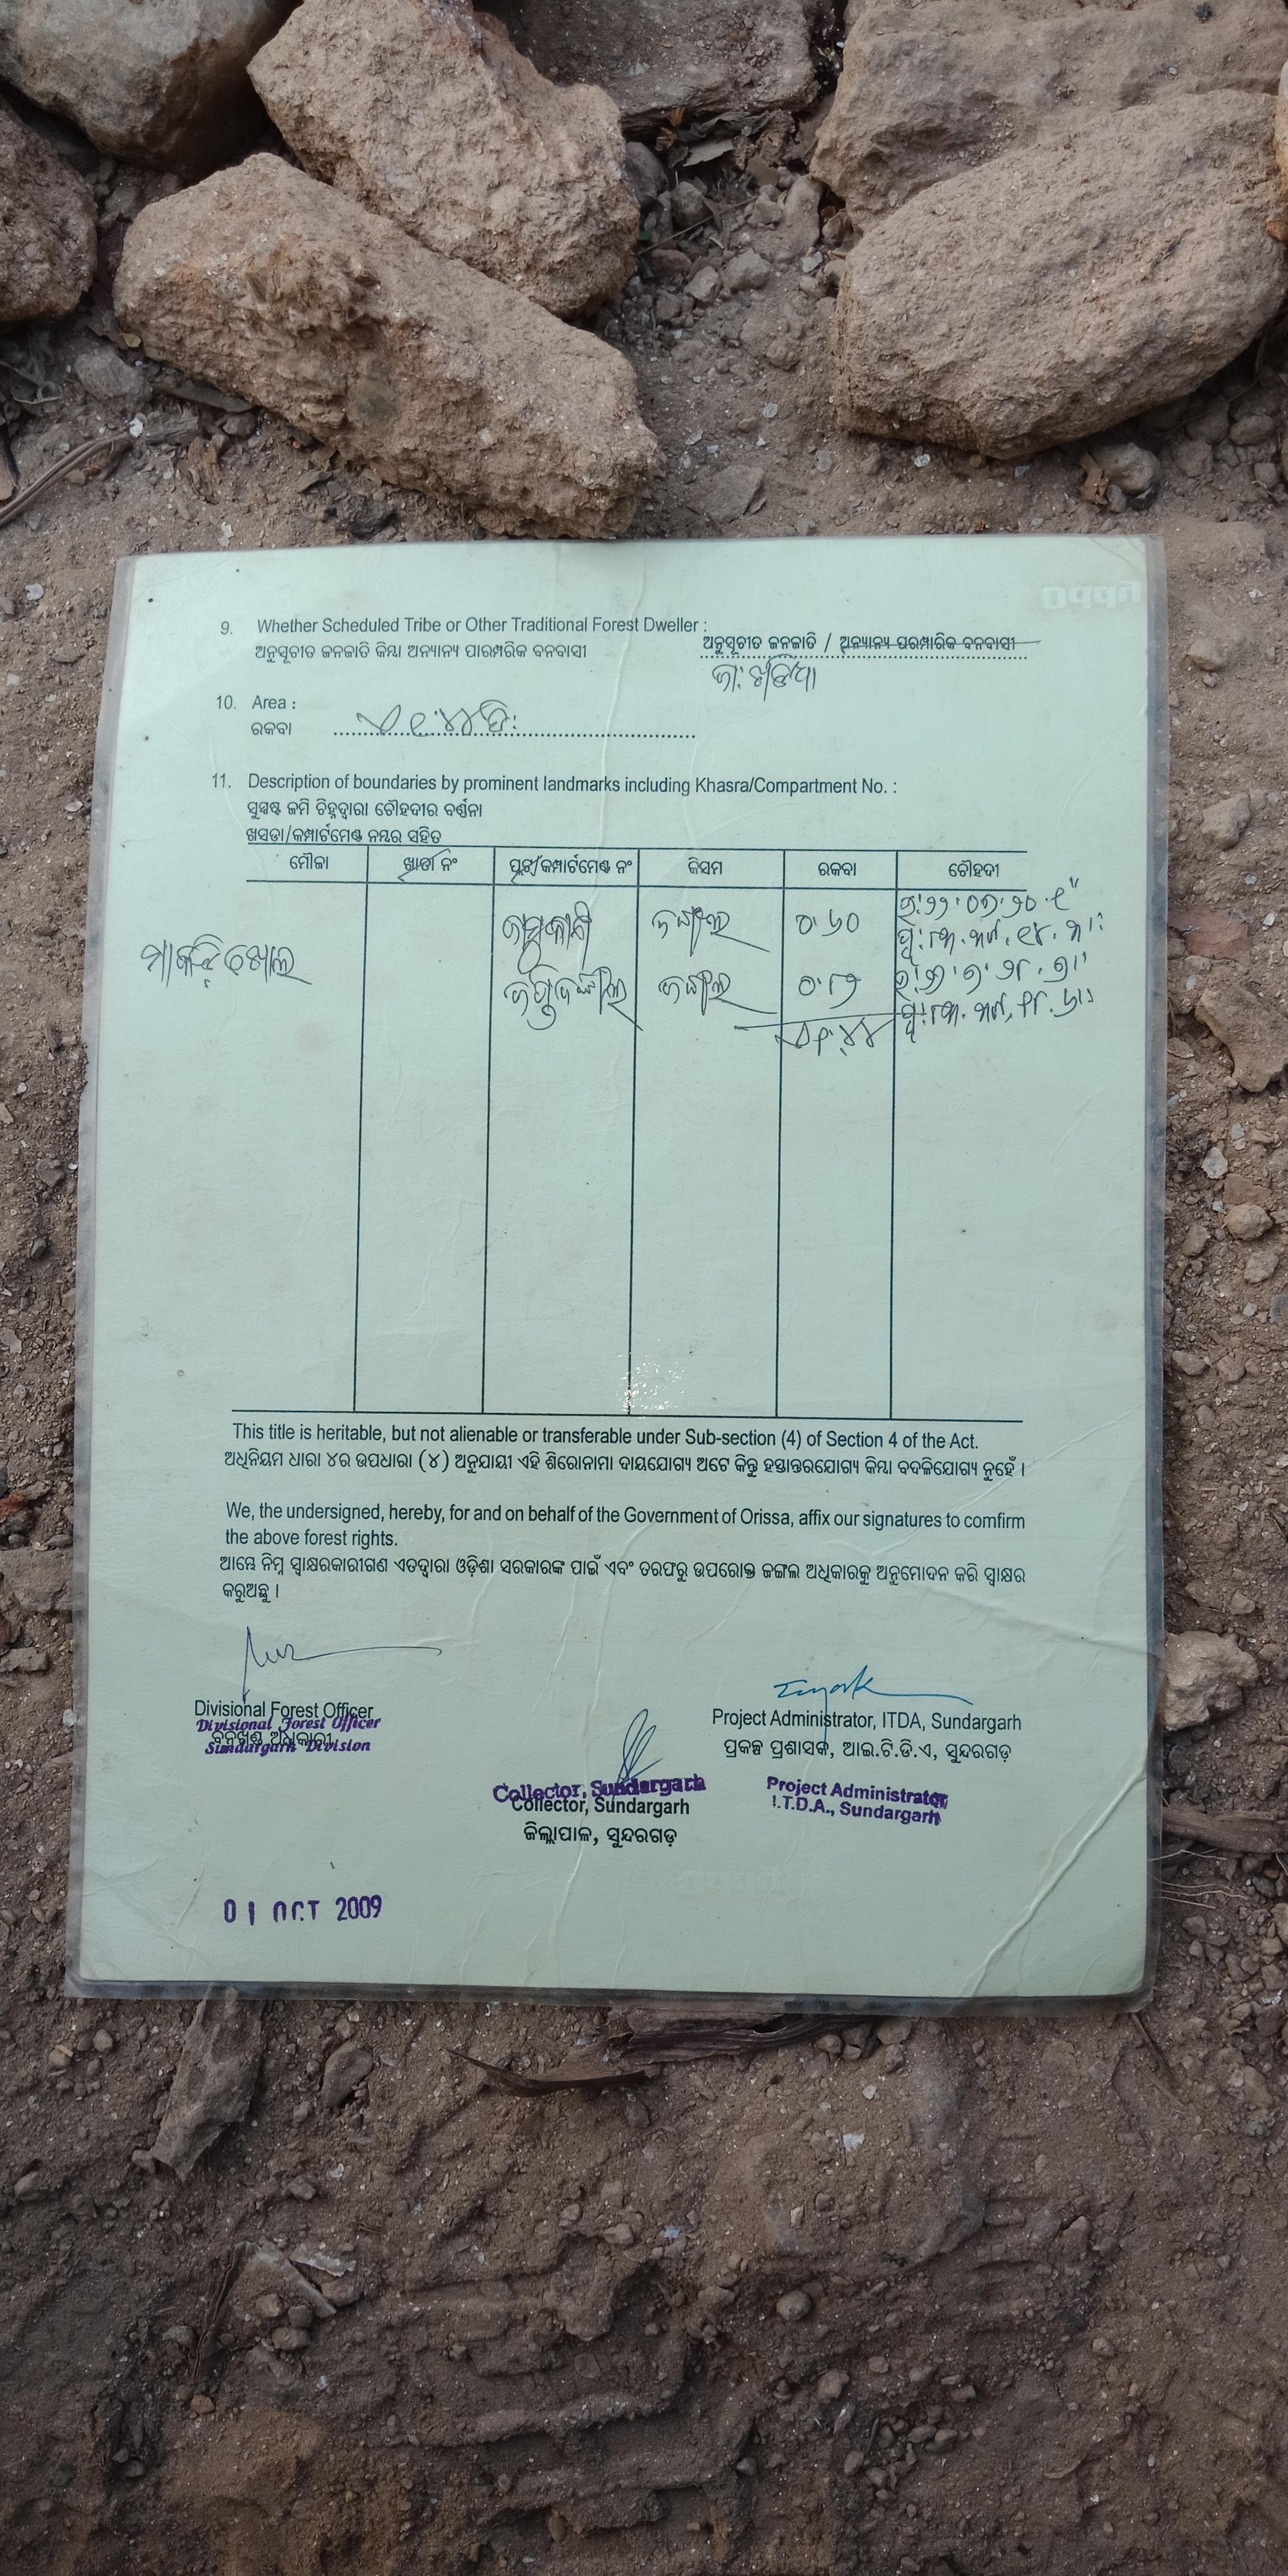 9. Whether Scheduled Tribe or Other Traditional Forest Dweller :
ଅନୁସୂଚୀତ ଜନଜାତି କିମ୍ବା ଅନ୍ୟାନ୍ୟ ପାରମ୍ପରିକ ବନବାସୀ
ଅନୁସୂଚୀତ ଜନଜାତି / ଅନ୍ୟାନ୍ୟ ପରମ୍ପାରିକ ବନବାସୀ
10. Area :
ରକବା
11. Description of boundaries by prominent landmarks including Khasra/Compartment No. :
ସୁସ୍ପଷ୍ଟ ଜମି ଚିହ୍ନଦ୍ୱାରା ଚୌହଦୀର ବର୍ଣ୍ଣନା
ଖସଡା/କମ୍ପାର୍ଟମେଣ୍ଟ ନମ୍ବର ସହିତ
ମୌଜା ଖାତା ନଂ ପ୍ଲଟ୍/କମ୍ପାର୍ଟମେଣ୍ଟ ନଂ କିସମ ରକବା ଚୌହଦୀ
ଜଙ୍ଗଲ ୦.୬୦
ଜଙ୍ଗଲ
This title is heritable, but not alienable or transferable under Sub-section (4) of Section 4 of the Act.
ଅଧିନିୟମ ଧାରା ୪ର ଉପଧାରା (୪) ଅନୁଯାୟୀ ଏହି ଶିରୋନାମା ଦାୟଯୋଗ୍ୟ ଅଟେ କିନ୍ତୁ ହସ୍ତାନ୍ତରଯୋଗ୍ୟ କିମ୍ବା ବଦଳିଯୋଗ୍ୟ ନୁହେଁ ।
We, the undersigned, hereby, for and on behalf of the Government of Orissa, affix our signatures to comfirm
the above forest rights.
ଆମ୍ଭେ ନିମ୍ନ ସ୍ୱାକ୍ଷରକାରୀଗଣ ଏତଦ୍ୱାରା ଓଡ଼ିଶା ସରକାରଙ୍କ ପାଇଁ ଏବଂ ତରଫରୁ ଉପରୋକ୍ତ ଜଙ୍ଗଲ ଅଧିକାରକୁ ଅନୁମୋଦନ କରି ସ୍ୱାକ୍ଷର
କରୁଅଛୁ ।
Divisional Forest Officer
ବନଖଣ୍ଡ ଅଧିକାରୀ
Divisional Forest Officer
Sundargarh Division
Project Administrator, ITDA, Sundargarh
ପ୍ରକଳ୍ପ ପ୍ରଶାସକ, ଆଇ.ଟି.ଡି.ଏ, ସୁନ୍ଦରଗଡ଼
Project Administrator
I.T.D.A., Sundargarh
Collector, Sundargarh
Collector, Sundargarh
ଜିଲ୍ଲାପାଳ, ସୁନ୍ଦରଗଡ଼
01 OCT 2009